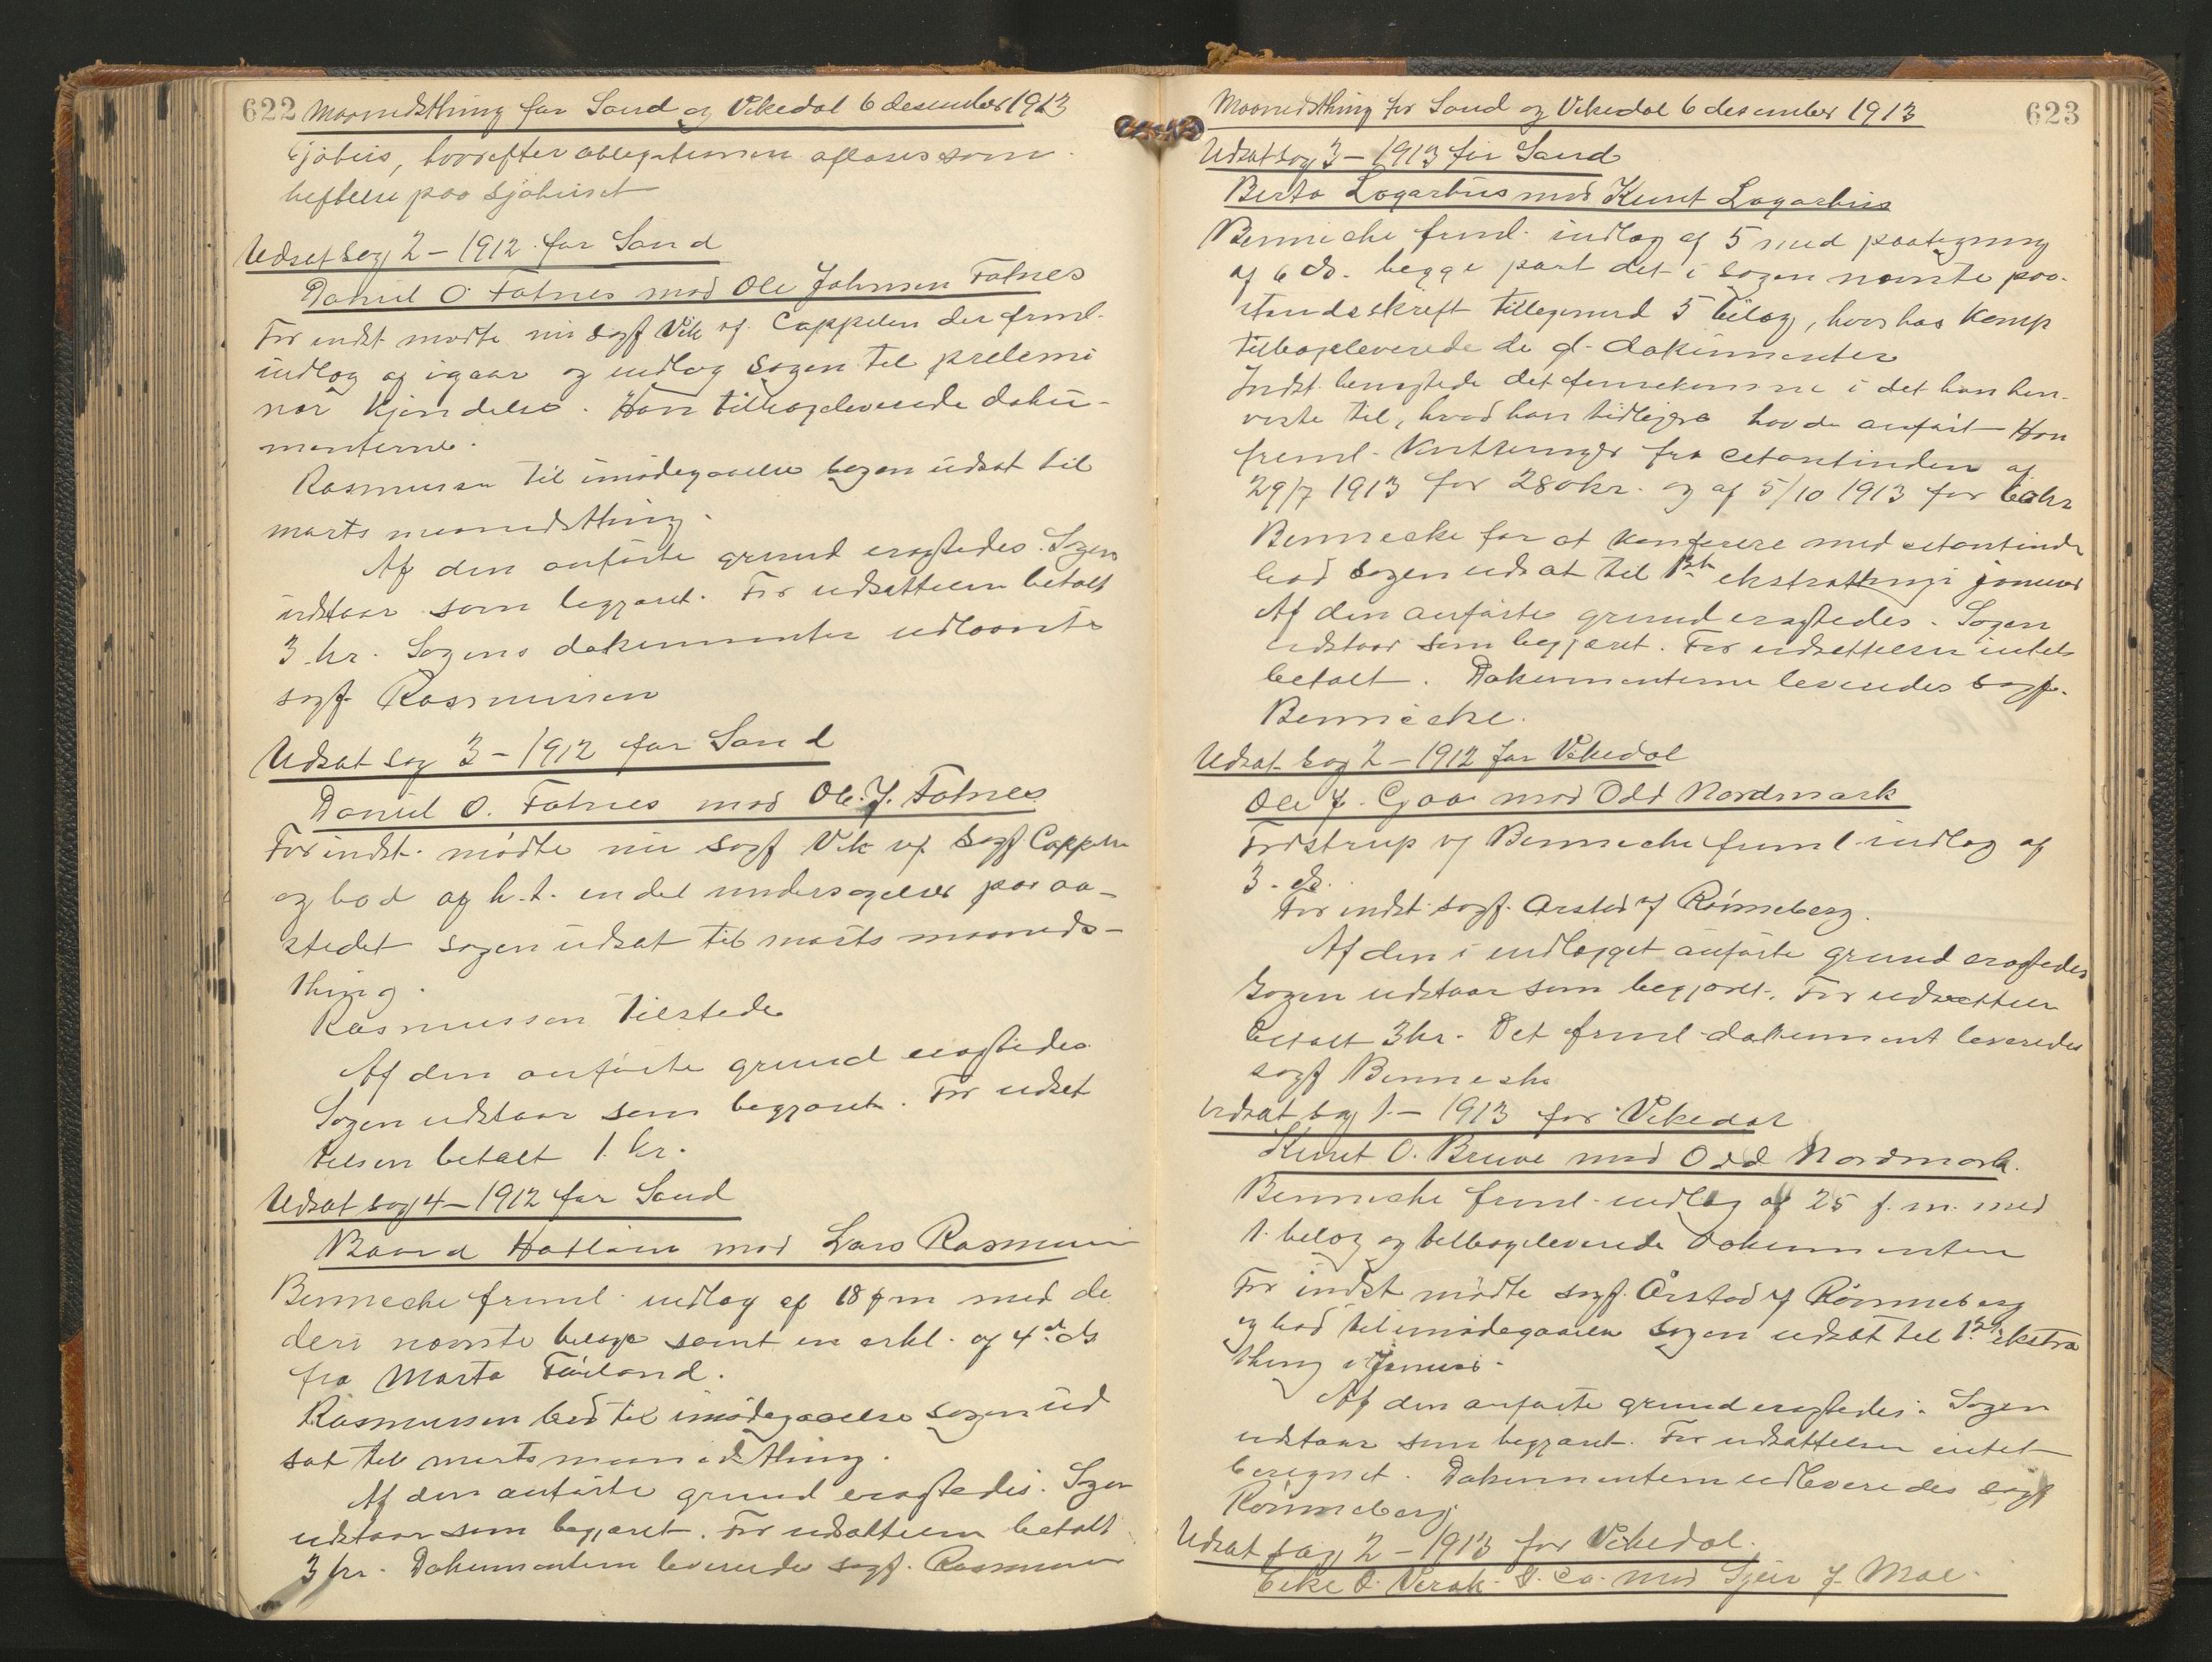 622 Maanedsthing for Sand og Vikedal 6 desember 1913
sjøhus, hvorefter obligationen aflæses som
heftelse paa sjøhuset
Udsat sag 2 - 1912 for Sand
Daniel O. Fatnes mod Ole Johnsen Fatnes
For indst mødte nu sagf Vik of. Cappelen der freml.
indlæg af igaar og indlog sagen til prelemi
nær kjendelse. Han tilbageleverede doku-
menterne.
Rasmussen til imødegaaelse sagen udsat til
marts maanedsthing.
Af den anførte grund eragtedes. Sagen
udstaar som begjæret. For udsættelsen betalt
3 kr. Sagens dokumenter udlaante
sagf. Rasmussen
Udsat sag 3 - 1912 for Sand
Daniel O. Fatnes mod Ole J. Fatnes
For indst. mødte nu sagf Vik of. sagf Cappelen
og bad af h. t. en del undersøgelser paa aa-
stedet sagen udsat til marts maaneds-
thing.
Rasmussen tilstede
Af den anførte grund eragtedes
Sagen udstaar som begjæret. For udsæt
telsen betalt 1. kr.
Udsat sag 4 - 1912 for Sand
Baard Hatløen mod Lars Rasmussen
Bennecke freml. indlæg af 18 f m med de
deri nævnte bilage samt en erkl. af 4de ds
fra Marta
Rasmussen bad til imødegaaelse sagen ud
sat til marts maanedsthing.
Af den anførte grund eragtedes. Sagen
udstaar som begjæret. For udsættelsen betalt
3 kr. Dokumenterne leveredes sagf. Rasmussen
Maanedsthing for Sand og Vikedal 6 desember 1913 623
Udsat sag 3 - 1913 for Sand
Berta Lagarhus mod Knut Lagarhus
Bennecke freml. indlæg af 5 med paategning
af 6 ds. begge part det i sagen nævnte paa-
standsskrift tillegemed 5 bilag, hvorhos komp
tilbageleverede de d. dokumenter
Indst. benegtede det fremkomne i det han hen-
viste til, hvad han tidligere havde anført. Han
freml. kvitteringer fra citantinden af
29/7 1913 for 280 kr. og af 5/10 1913 for 60 kr
Bennecke for at konferere med citantinden
bad sagen udsat til 1ste ekstrathing i januar
Af den anførte grund eragtedes. Sagen
udstaar som begjæret. For udsættelsen intet
betalt. Dokumenterne leveredes sagf.
Bennecke.
Udsat sag 2 - 1912 for Vikedal
Ole J. Gjaa mod Odd Nordmark
Fredstrup of Bennecke freml. indlæg af
3. ds.
For indst sagf. Årstad of Rønneberg.
Af den i indlægget anførte grund eragtedes
Sagen udstaar som begjæret. For udsættelsen
betalt 3 kr. Det freml. dokument leveredes
sagf Bennecke
Udsat sag 1 - 1913 for Vikedal
Knut O. Bruve mod Odd Nordmark.
Bennecke freml. indlæg af 25 f. m. med
1. bilag og tilbageleverede dokumenterne
For indst mødte sagf. Årstad of Rønneberg
og bad til imødegaaelse sagen udsat til 1ste ekstra
thing i Januar.
Af den anførte grund eragtedes. Sagen
udstaar som begjæret. For udsættelsen intet
beregnet. Dokumenterne udleveredes sagf
Rønneberg
Udsat sag 2 - 1913 for Vikedal.
O. & Co. mod Sjur J. Moe.